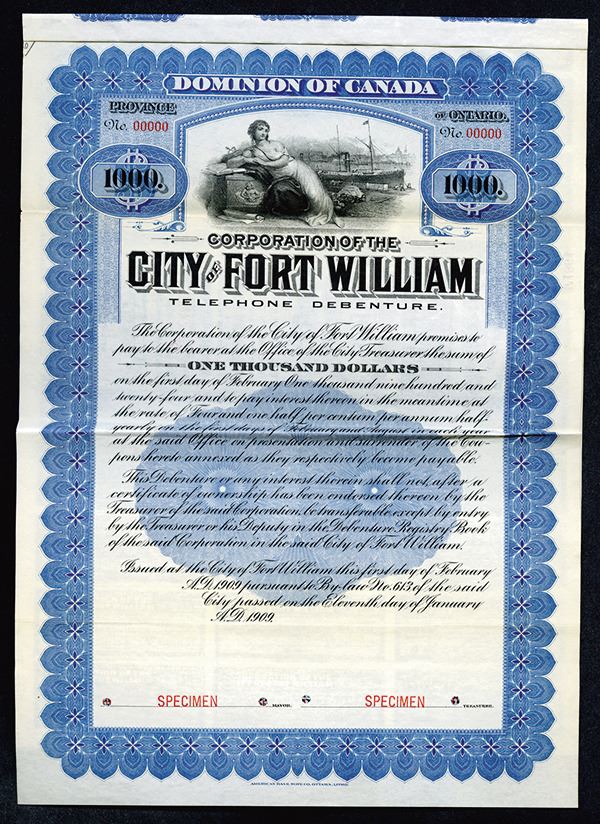 DOMINION OF CANADA
PROVINCE OF ONTARIO.
No. 00000 No. 00000
1000. 1000.
CORPORATION OF THE
CITY OF FORT WILLIAM
TELEPHONE DEBENTURE.
The Corporation of the City of Fort William promises to
pay to the bearer at the Office of the City Treasurer the sum of
ONE THOUSAND DOLLARS
on the first day of February One thousand nine hundred and
twenty-four and to pay interest thereon in the meantime at
the rate of Four and one half per centum per annum half-
yearly on the first days of February and August in each year
at the said Office on presentation and surrender of the Cou-
pons hereto annexed as they respectively become payable.
This Debenture or any interest therein shall not, after a
certificate of ownership has been endorsed thereon by the
Treasurer of the said Corporation, be transferable except by entry
by the Treasurer or his Deputy in the Debenture Registry Book
of the said Corporation in the said City of Fort William.
Issued at the City of Fort William this first day of February
A.D. 1909 pursuant to By-law No. 613 of the said
City passed on the Eleventh day of January
A.D. 1909.
SPECIMEN MAYOR. SPECIMEN TREASURER.
AMERICAN BANK NOTE CO. OTTAWA, LITHO.